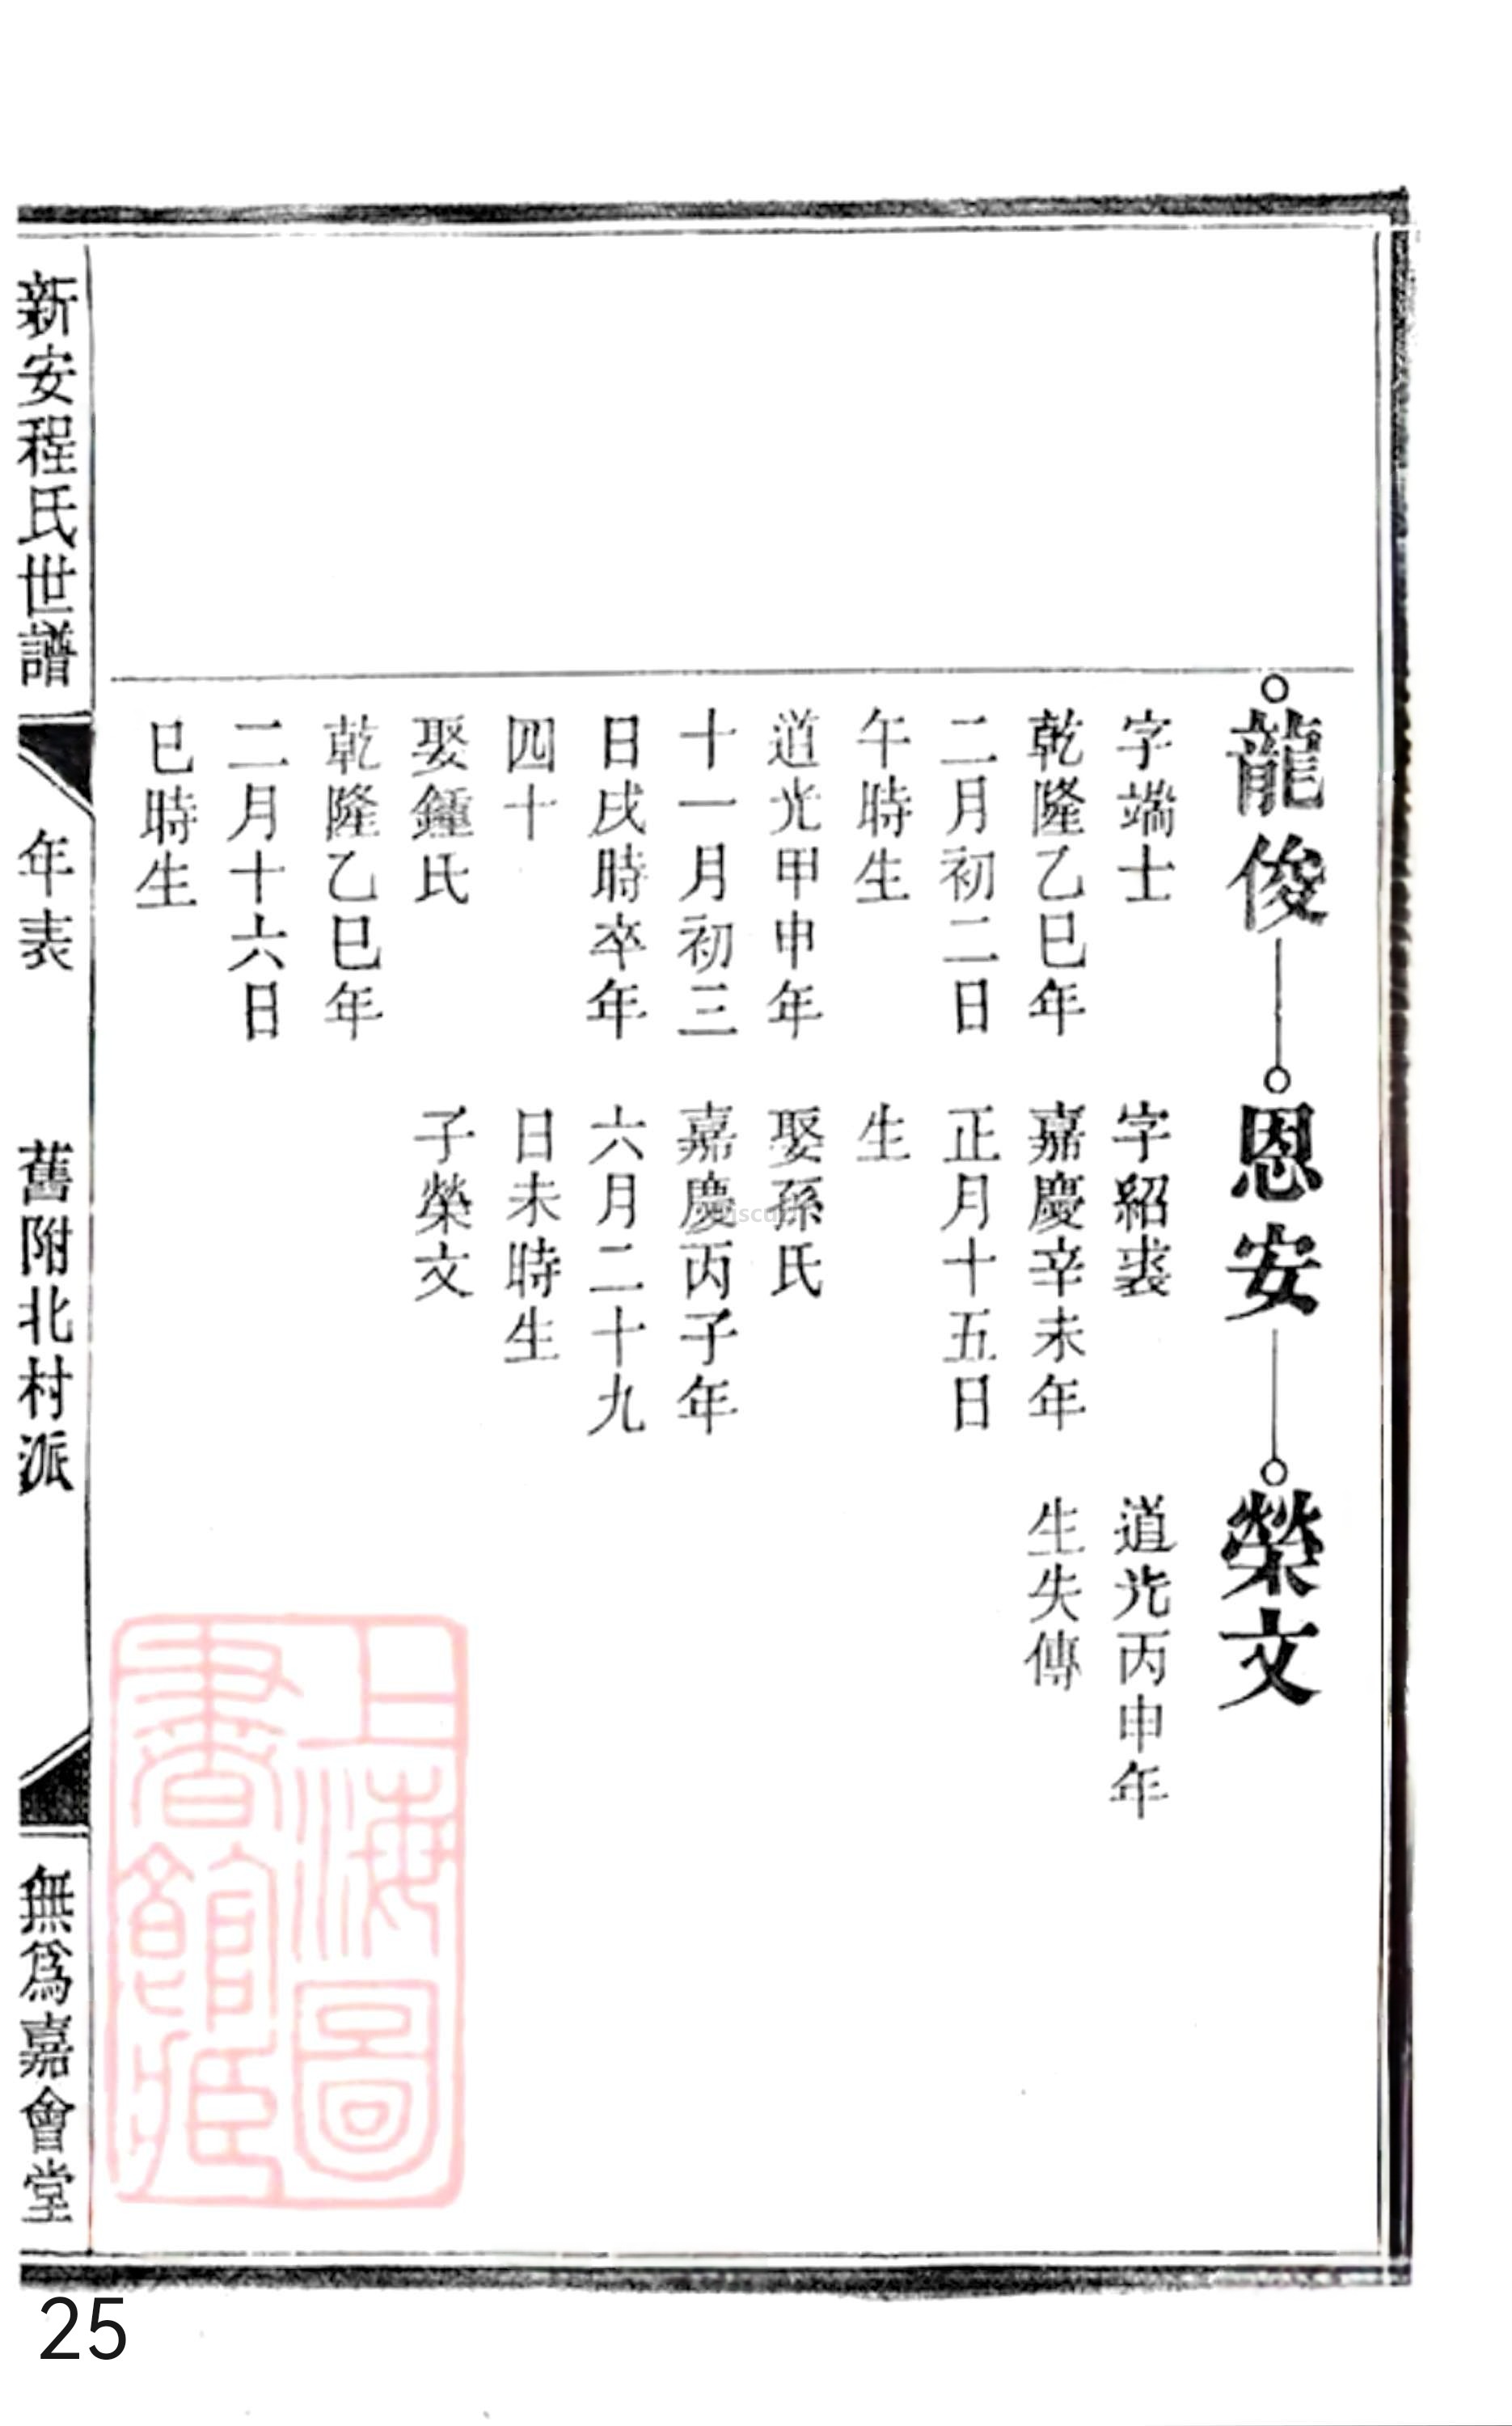 龍俊
字端士
乾隆乙巳年
二月初二日
午時生
道光甲申年
十一月初三
日戌時卒年
四十
娶鍾氏
乾隆乙巳年
二月十六日
巳時生
恩安
字紹裘
嘉慶辛未年
正月十五日
生
娶孫氏
嘉慶丙子年
六月二十九
日未時生
子榮文
榮文
道光丙申年
生失傳
新安程氏世譜
年表
舊附北村派
無爲嘉會堂
上海圖
書館藏
25